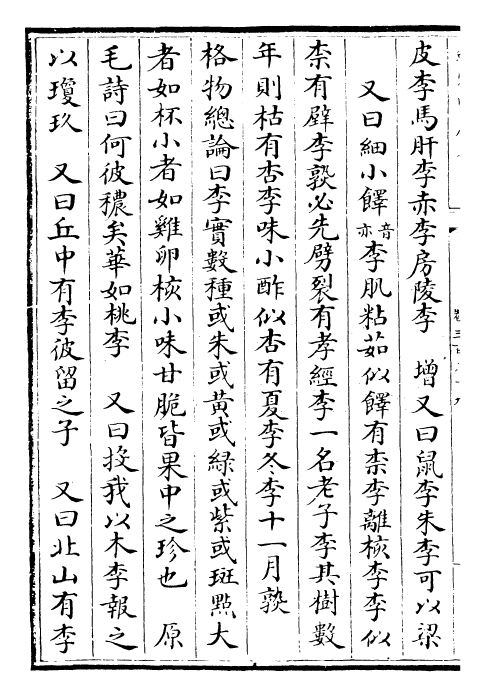 皮李馬肝李赤李房陵李　增又曰鼠李朱李可以梁
又曰細小饆音亦李肌粘茹似饆有柰李離核李李似
柰有劈李熟必先劈裂有孝經李一名老子李其樹數
年則枯有杏李味小酢似杏有夏李冬李十一月熟
格物總論曰李實數種或朱或黄或緑或紫或斑㸃大
者如杯小者如雞卵核小味甘脆皆果中之珍也　原
毛詩曰何彼穠矣華如桃李　又曰投我以木李報之
以瓊玖　又曰丘中有李彼留之子　又曰北山有李